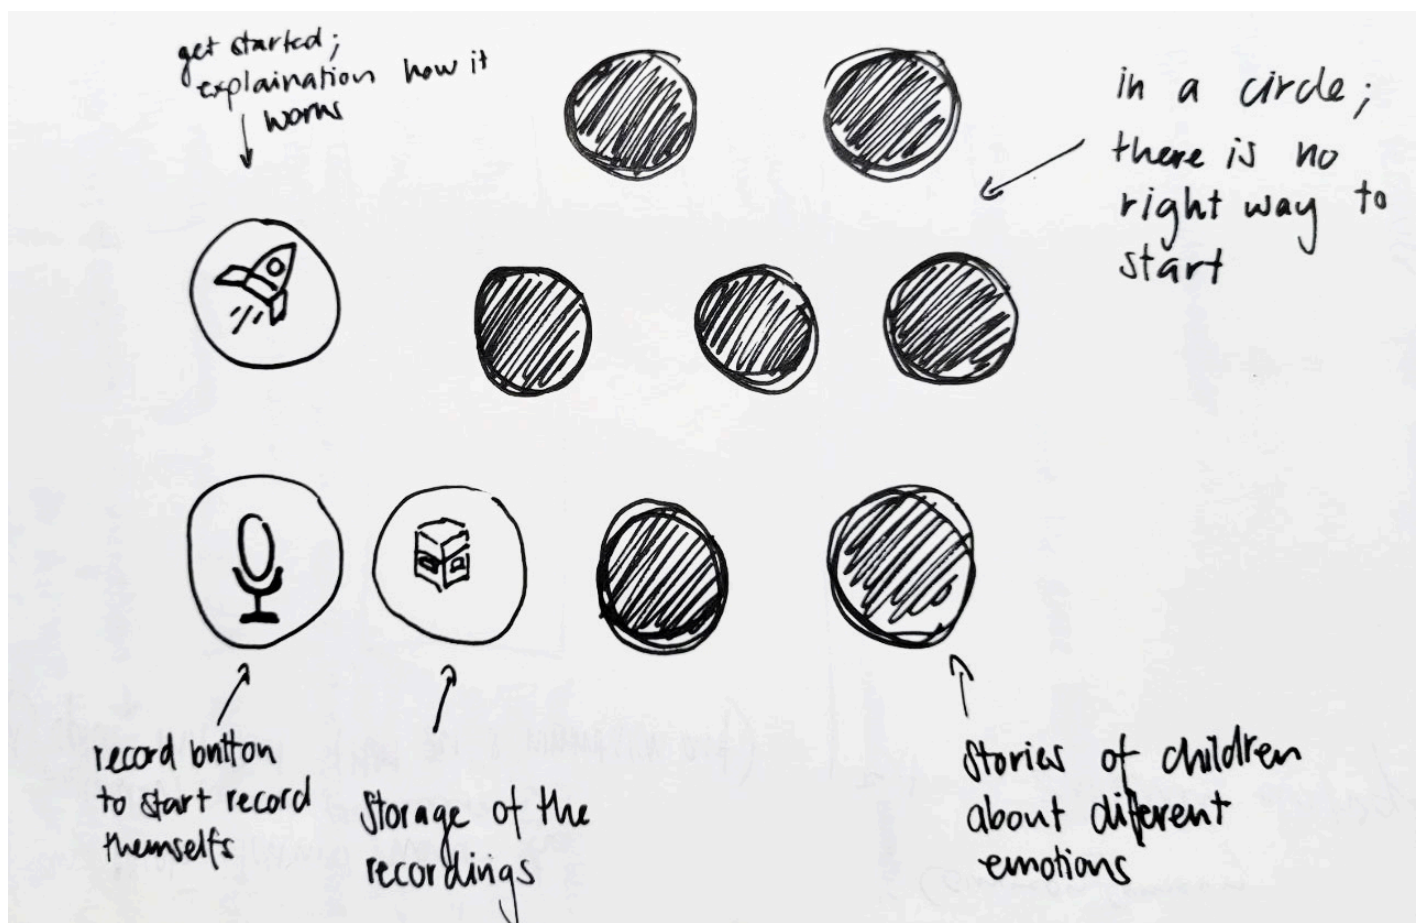 get started;
explaination how it
works
in a circle;
there is no
right way to
start
record button
to start record
themselfs
Storage of the
recordings
Stories of children
about different
emotions